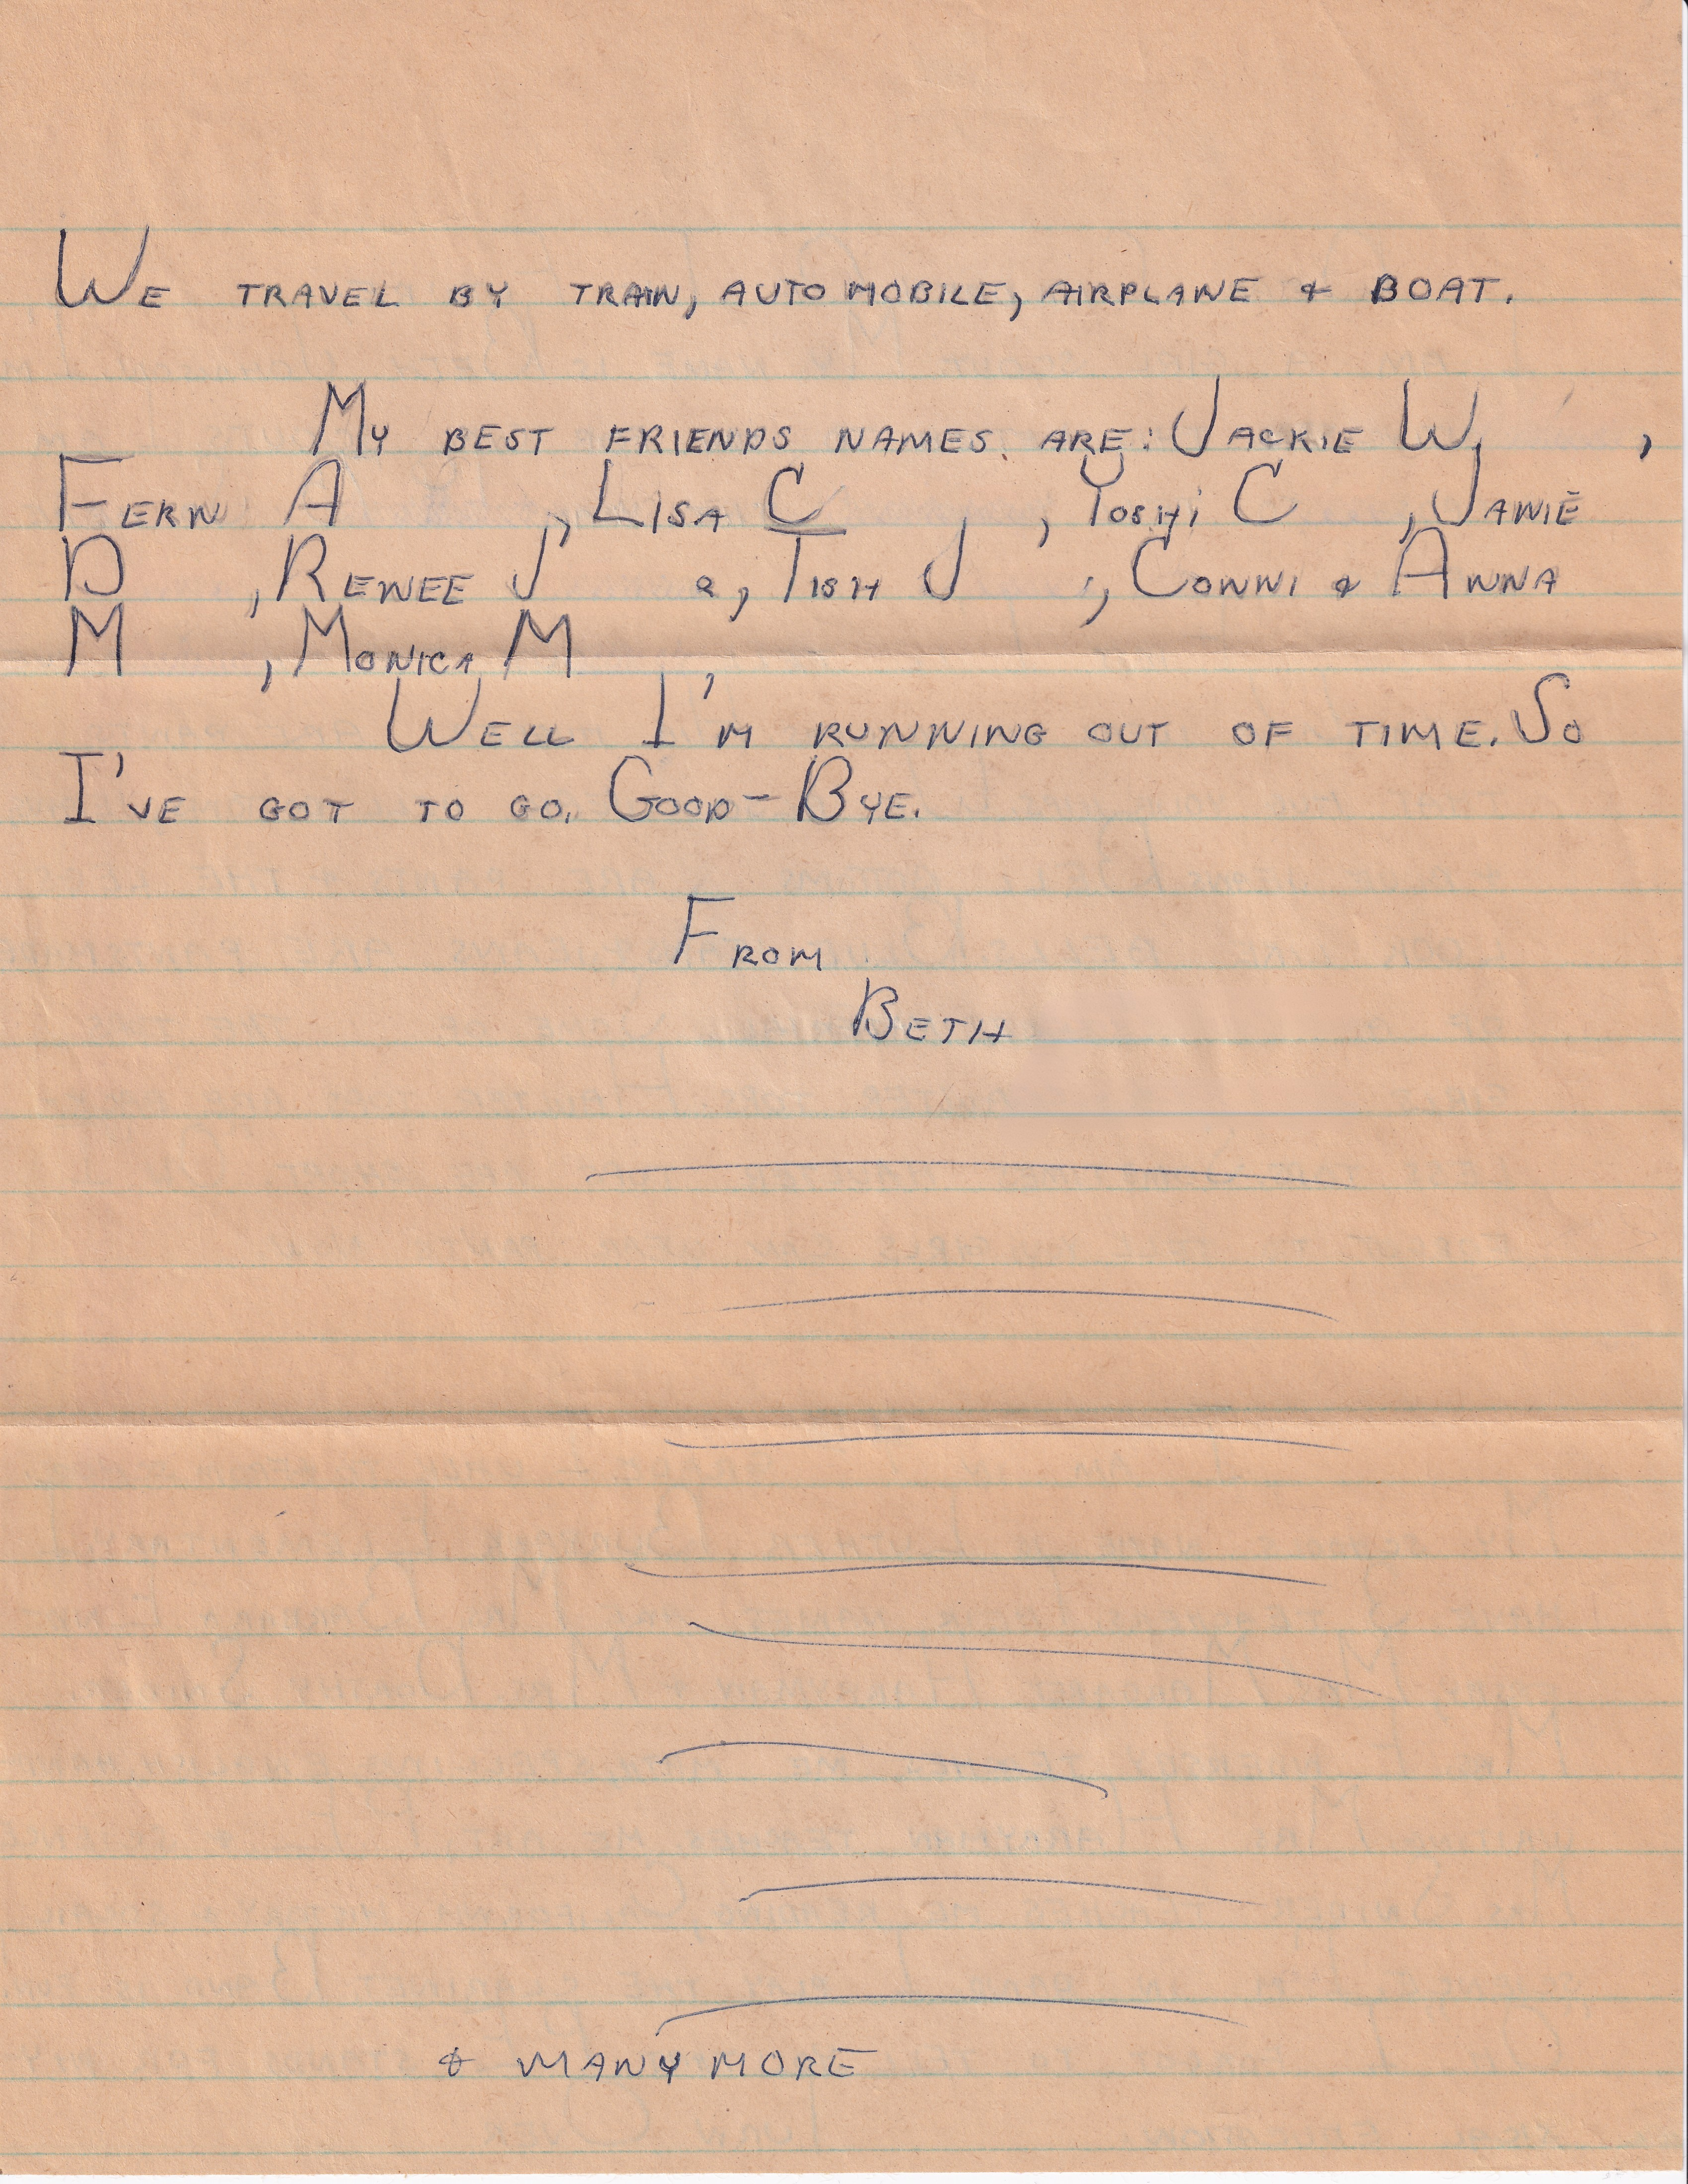 WE TRAVEL BY TRAIN, AUTOMOBILE, AIRPLANE & BOAT.
MY BEST FRIENDS NAMES ARE: JACKIE W,
FERN A, LISA C, YOSHI C, JANIE
D, RENEE J, TISH J, CONNI & ANNA
M, MONICA M,
WELL I'M RUNNING OUT OF TIME. SO
I'VE GOT TO GO. GOOD-BYE.
FROM
BETH
& MANY MORE